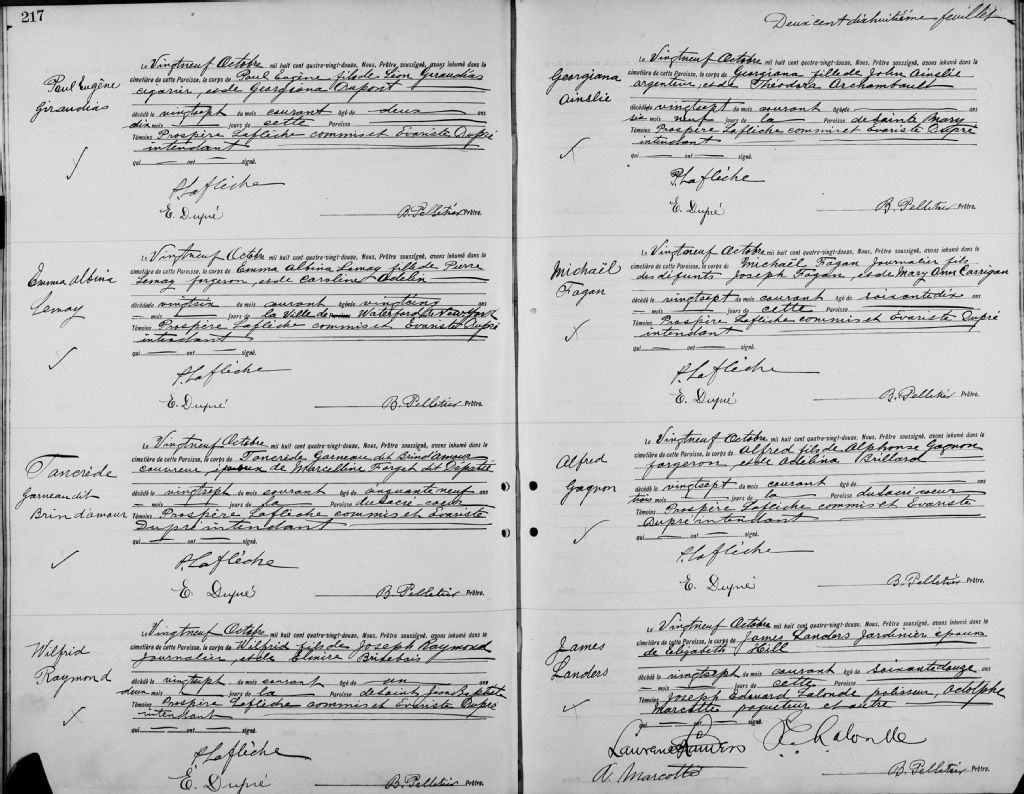 217
Paul Eugène
Giraudias
Le Vingtneuf Octobre mil huit cent quatre-vingt-douze, Nous, Prêtre soussigné, avons inhumé dans le
cimetière de cette Paroisse, le corps de Paul Eugène fils de Léon Giraudias
cigarier, et de Georgiana Dupont
décédé le vingtsept du mois courant âgé de deux ans
dix mois jours de cette Paroisse
Témoins Prospère Laflèche commis et Evariste Dupré
intendant
qui ont signé.
P. Laflèche
E. Dupré B. Pelletier Prêtre.
Emma Albina
Lemay
Le Vingtneuf Octobre mil huit cent quatre-vingt-douze, Nous, Prêtre soussigné, avons inhumé dans le
cimetière de cette Paroisse, le corps de Emma Albina Lemay fille de Pierre
Lemay forgeron, et de Caroline
décédée vingtsix du mois courant âgée de vingtcinq ans
mois jours de la Ville de Waterford de New York
Témoins Prospère Laflèche commis et Evariste Dupré
intendant
qui ont signé.
P. Laflèche
E. Dupré B. Pelletier Prêtre.
Tancrède
Garneau dit
Brin d'amour
Le Vingtneuf Octobre mil huit cent quatre-vingt-douze, Nous, Prêtre soussigné, avons inhumé dans le
cimetière de cette Paroisse, le corps de Tancrède Garneau dit Brind'amour
couvreur, époux de Marcelline Forget dit Depatie
décédé le vingtsept du mois courant âgé de cinquanteneuf ans
mois jours de la Paroisse du sacré-coeur
Témoins Prospère Laflèche commis et Evariste
Dupré intendant
qui ont signé.
P. Laflèche
E. Dupré B. Pelletier Prêtre.
Wilfrid
Raymond
Le Vingtneuf Octobre mil huit cent quatre-vingt-douze, Nous, Prêtre soussigné, avons inhumé dans le
cimetière de cette Paroisse, le corps de Wilfrid fils de Joseph Raymond
journalier, et de Elmire Brisebois
décédé le vingtsept du mois courant âgé de un an
deux mois jours de la Paroisse de Saint Jean Baptiste
Témoins Prospère Laflèche commis et Evariste Dupré
intendant
qui ont signé.
P. Laflèche
E. Dupré B. Pelletier Prêtre.
Deux cent dixhuitième feuillet
Georgiana
Ainslie
Le Vingtneuf Octobre mil huit cent quatre-vingt-douze, Nous, Prêtre soussigné, avons inhumé dans le
cimetière de cette Paroisse, le corps de Georgiana fille de John Ainslie
argenteur, et de Théodora Archambault
décédée vingtsept du mois courant âgée ans
six mois neuf jours de la Paroisse de Sainte Mary
Témoins Prospère Laflèche commis et Evariste Dupré
intendant
qui ont signé.
P. Laflèche
E. Dupré B. Pelletier Prêtre.
Michaël
Fagan
Le Vingtneuf Octobre mil huit cent quatre-vingt-douze, Nous, Prêtre soussigné, avons inhumé dans le
cimetière de cette Paroisse, le corps de Michaël Fagan Journalier fils
des défunts Joseph Fagan, et de Mary Ann Carrigan
décédé le vingtsept du mois courant âgé de soixantedix ans
mois jours de cette Paroisse
Témoins Prospère Laflèche commis et Evariste Dupré
intendant
qui ont signé.
P. Laflèche
E. Dupré B. Pelletier Prêtre.
Alfred
Gagnon
Le Vingtneuf Octobre mil huit cent quatre-vingt-douze, Nous, Prêtre soussigné, avons inhumé dans le
cimetière de cette Paroisse, le corps de Alfred fils de Alphonse Gagnon
forgeron, et de Adelina Brillard
décédé le vingtsept du mois courant âgé de ans
trois mois jours de la Paroisse du sacré coeur
Témoins Prospère Laflèche commis et Evariste
Dupré intendant
qui ont signé.
P. Laflèche
E. Dupré B. Pelletier Prêtre.
James
Landers
Le Vingtneuf Octobre mil huit cent quatre-vingt-douze, Nous, Prêtre soussigné, avons inhumé dans le
cimetière de cette Paroisse, le corps de James Landers Jardinier époux
de Elizabeth Hill
décédé le vingtsept du mois courant âgé de soixantedouze ans
mois jours de cette Paroisse
Témoins Joseph Edouard Lalonde polisseur, Adolphe
Marcotte paqueteur et autre
qui ont signé.
Laurence Landers J. E. Lalonde
A. Marcotte
B. Pelletier Prêtre.